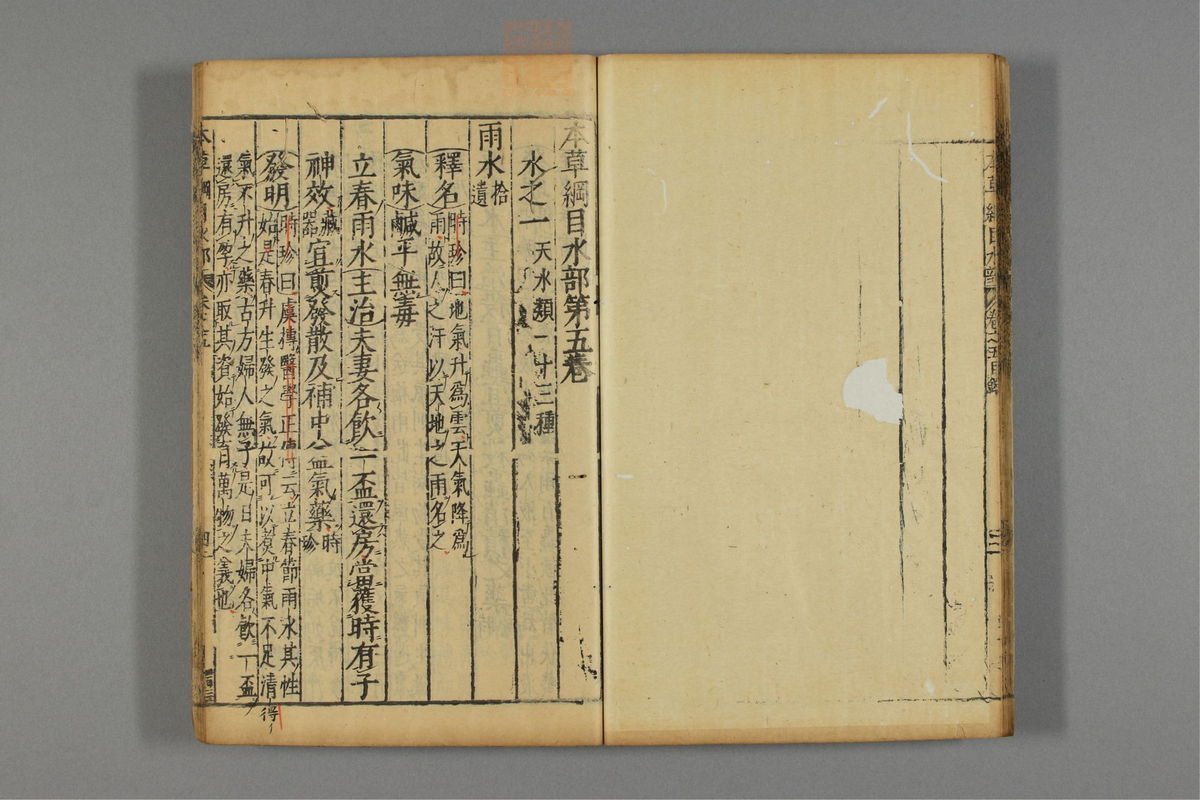 本草綱目水部第五卷
水之一 天水類一十三種
雨水 拾遺
釋名 時珍曰地氣升爲雲天氣降爲
雨故人之汗以天地之雨名之
氣味鹹平無毒
立春雨水主治夫妻各飲一盃還房當獲時有子
神效 藏器 宜煎發散及補中益氣藥 時珍
發明 時珍曰虞摶醫學正傳云立春節雨水其性
始是春升生發之氣故可以煑中氣不足清
氣不升之藥古方婦人無子是日夫婦各飲一盃
還房有孕亦取其資始發育萬物之義也